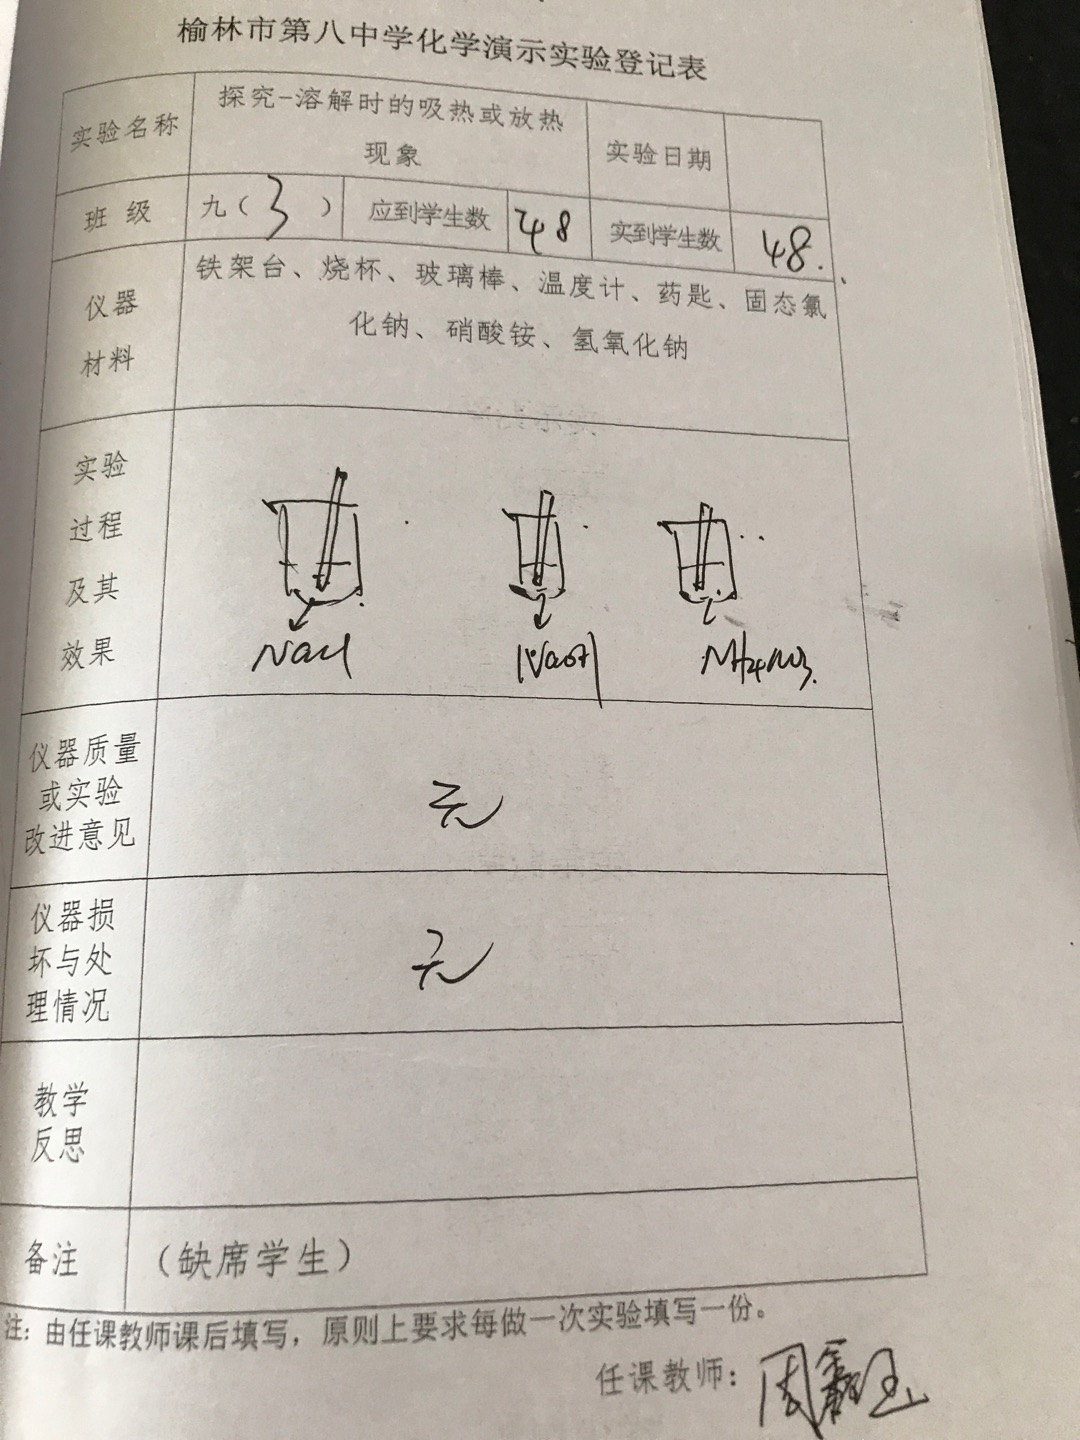 榆林市第八中学化学演示实验登记表
实验名称
探究-溶解时的吸热或放热
现象
实验日期
班 级
九（3）
应到学生数
48
实到学生数
48.
仪器
材料
铁架台、烧杯、玻璃棒、温度计、药匙、固态氯
化钠、硝酸铵、氢氧化钠
实验
过程
及其
效果
NaCl
NaOH
NH4NO3.
仪器质量
或实验
改进意见
无
仪器损
坏与处
理情况
无
教学
反思
备注
（缺席学生）
注：由任课教师课后填写，原则上要求每做一次实验填写一份。
任课教师：周